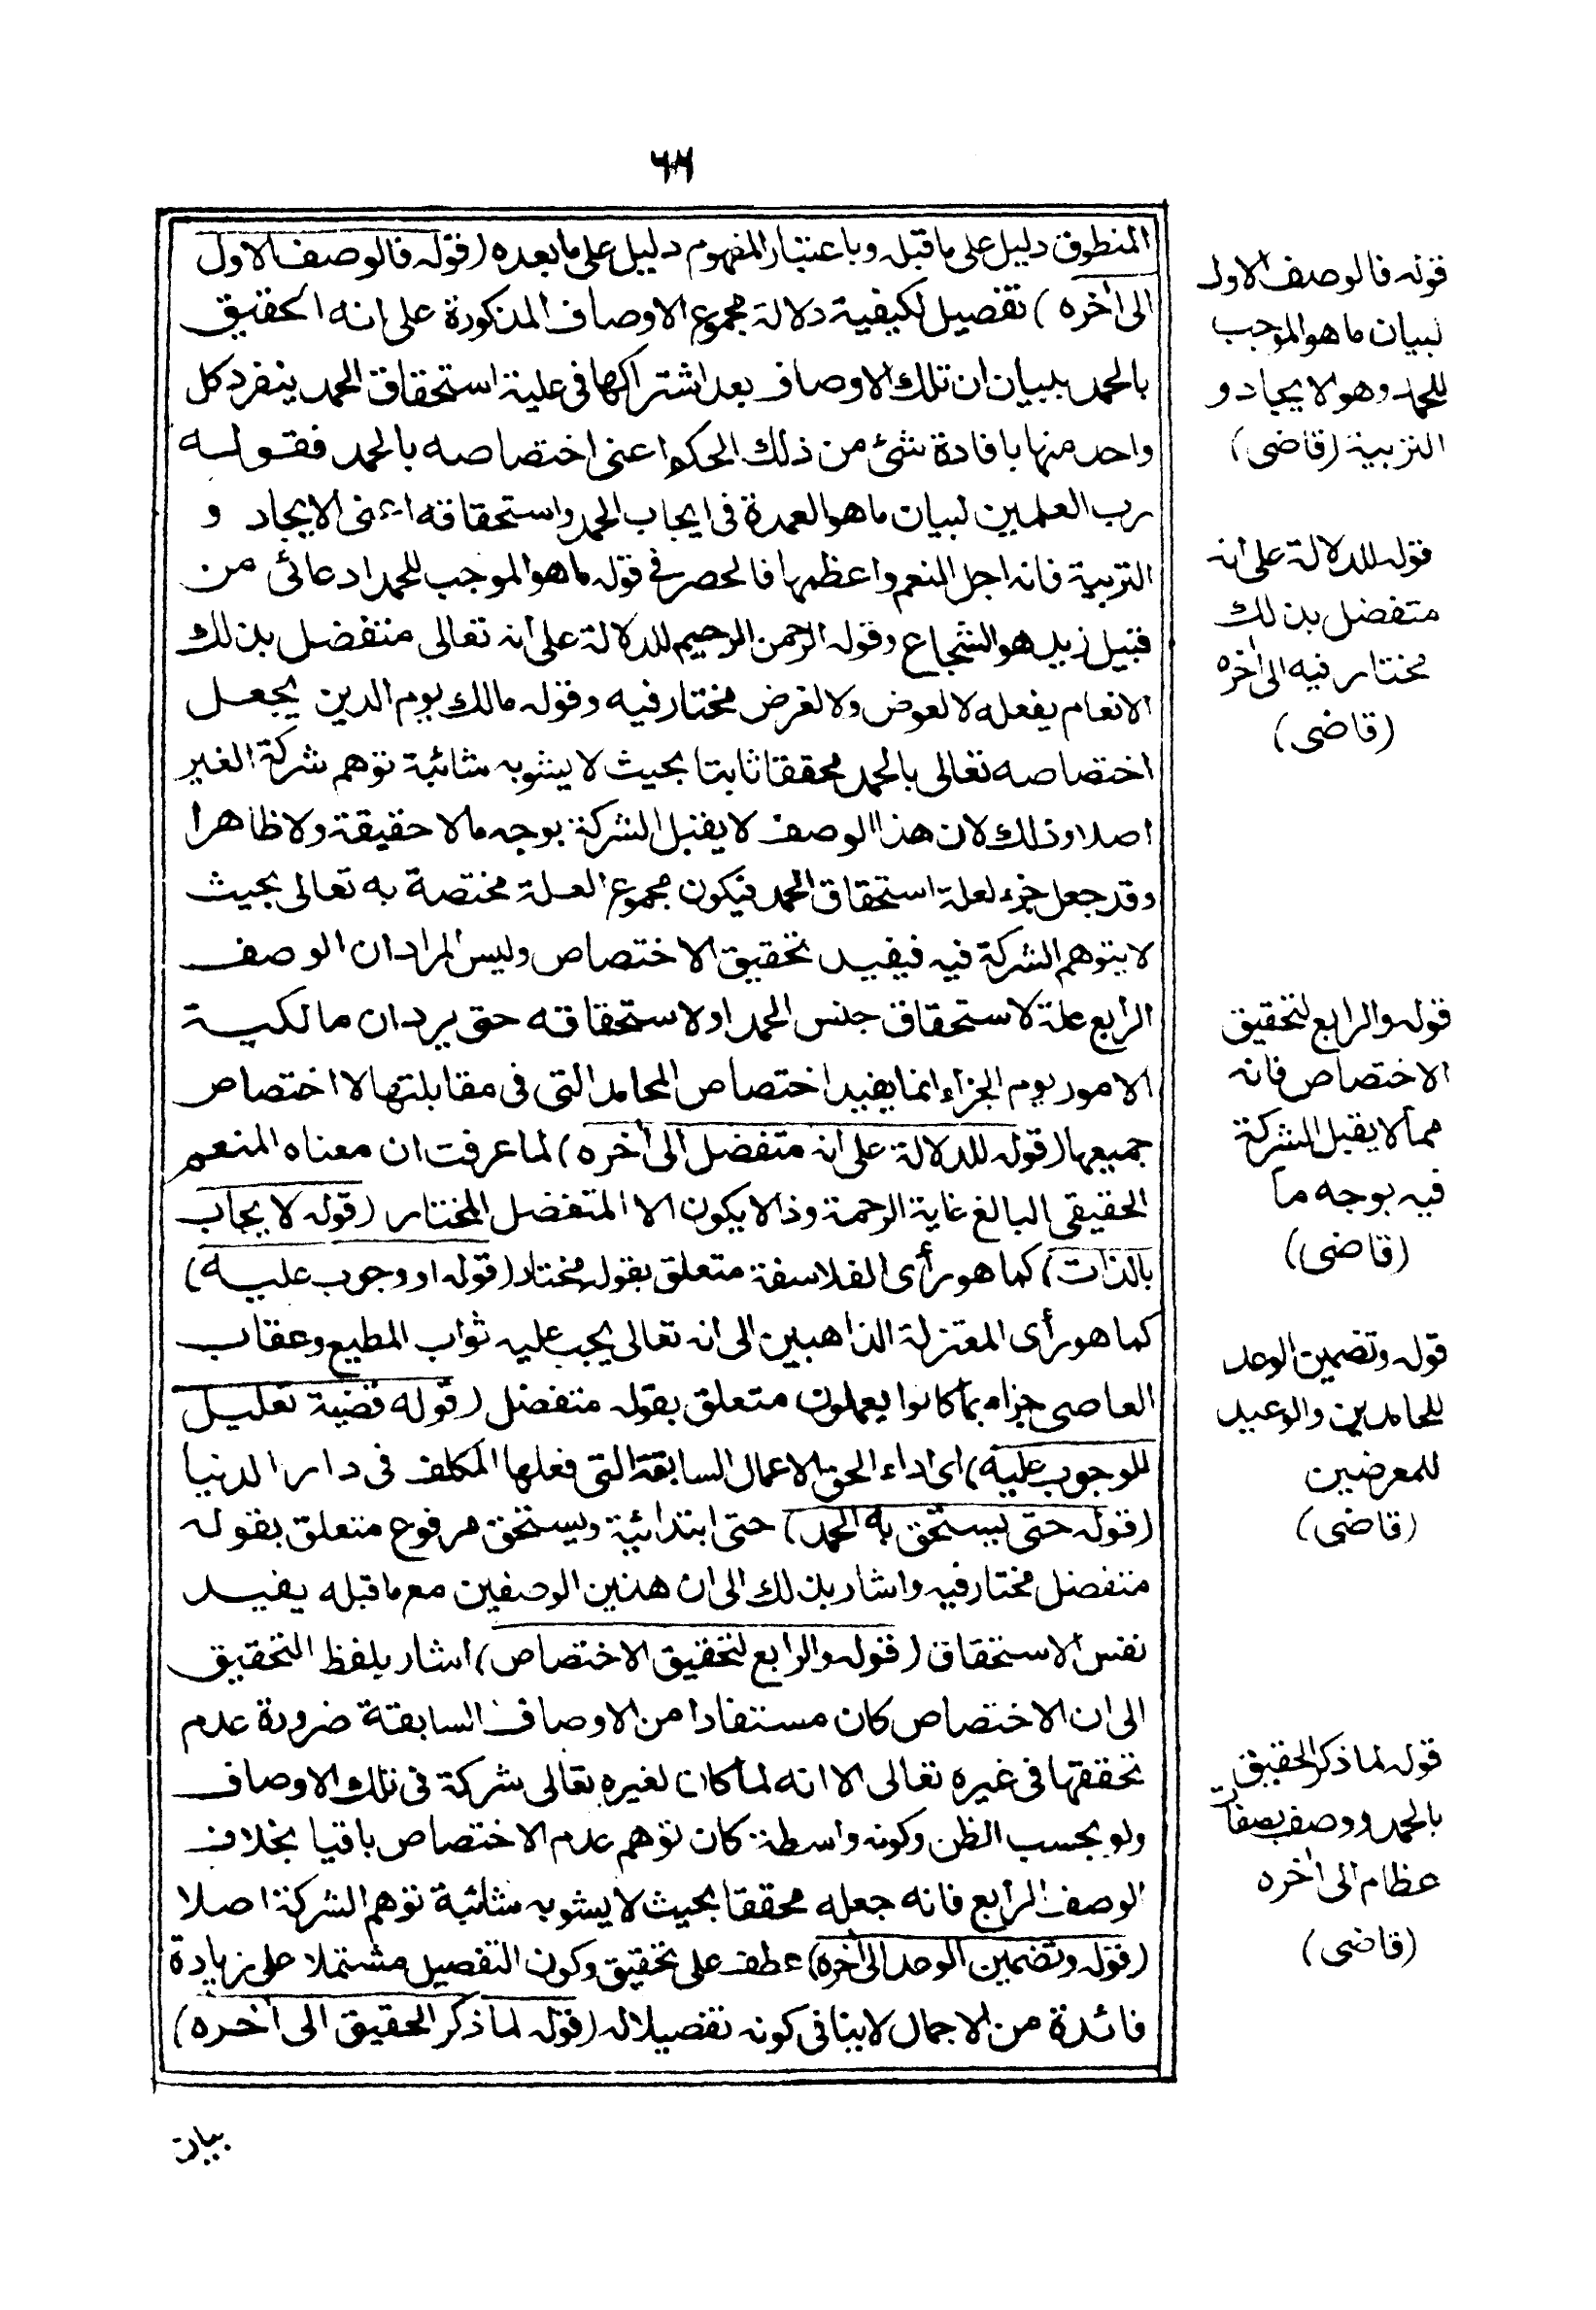 ٦٦
المنطوق دليل على ما قبله وباعتبار المفهوم دليل على ما بعده (قوله فالوصف الاول
الى أخره) تفصيل لكيفية دلالة مجموع الاوصاف المذكورة على انه الحقيق
بالحمد ببيان ان تلك الاوصاف بعد اشتراكها في علية استحقاق الحمد ينفرد كل
واحد منها بافادة شئ من ذلك الحكم اعنى اختصاصه بالحمد فقوله
رب العلمين لبيان ما هو العمدة فى ايجاب الحمد واستحقاقه اعنى الايجاد و
التربية فانه اجل النعم واعظمها فالحصر في قوله ما هو الموجب للحمد ادعائى من
قبيل زيد هو الشجاع وقوله الرحمن الرحيم للدلالة على انه تعالى متفضل بذلك
الانعام يفعله لا لعوض ولا لغرض مختار فيه وقوله مالك يوم الدين يجعل
اختصاصه تعالى بالحمد محققا ثابتا بحيث لا يشوبه شائبة توهم شركة الغير
اصلا وذلك لان هذا الوصف لا يقبل الشركة بوجه ما لا حقيقة ولا ظاهرا
وقد جعل جزء لعلة استحقاق الحمد فيكون مجموع العلة مختصة به تعالى بحيث
لا يتوهم الشركة فيه فيفيد تحقيق الاختصاص وليس المراد ان الوصف
الرابع علة لاستحقاق جنس الحمد او لاستحقاقه حتى يرد ان مالكية
الامور يوم الجزاء انما يفيد اختصاص المحامد التى فى مقابلتها لا اختصاص
جميعها (قوله للدلالة على انه متفضل الى أخره) لما عرفت ان معناه المنعم
الحقيقى البالغ غاية الرحمة وذا لا يكون الا المتفضل المختار (قوله لا يجاب
بالذات) كما هو رأى الفلاسفة متعلق بقوله مختار (قوله او وجوب عليه)
كما هو رأى المعتزلة الذاهبين الى انه تعالى يجب عليه ثواب المطيع وعقاب
العاصى جزاء بما كانوا يعملون متعلق بقوله متفضل (قوله قضية تعليل
للوجوب عليه) اى اداء الحق الاعمال السابقة التى فعلها المكلف فى دار الدنيا
(قوله حتى يستحق به الحمد) حتى ابتدائية ويستحق مرفوع متعلق بقوله
متفضل مختار فيه واشار بذلك الى ان هذين الوصفين مع ما قبله يفيد
نفس الاستحقاق (قوله والرابع لتحقيق الاختصاص) اشار بلفظ التحقيق
الى ان الاختصاص كان مستفادا من الاوصاف السابقة ضرورة عدم
تحققها فى غيره تعالى الا انه لما كان لغيره تعالى شركة فى تلك الاوصاف
ولو بحسب الظن وكونه واسطة كان توهم عدم الاختصاص باقيا بخلاف
الوصف الرابع فانه جعله محققا بحيث لا يشوبه شائبة توهم الشركة اصلا
(قوله وتضمين الوعد الى أخره) عطف على تحقيق وكون التفصيل مشتملا على زيادة
فائدة من الاجمال لا ينافى كونه تفصيلا له (قوله لما ذكر الحقيق الى أخره)
بيان
قوله فالوصف الاول
لبيان ما هو الموجب
للحمد وهو الايجاد و
التربية (قاضى)
قوله للدلالة على انه
متفضل بذلك
مختار فيه الى أخره
(قاضى)
قوله والرابع لتحقيق
الاختصاص فانه
مما لا يقبل الشركة
فيه بوجه ما
(قاضى)
قوله وتضمين الوعد
للحامدين والوعيد
للمعرضين
(قاضى)
قوله لما ذكر الحقيق
بالحمد ووصف بصفات
عظام الى أخره
(قاضى)